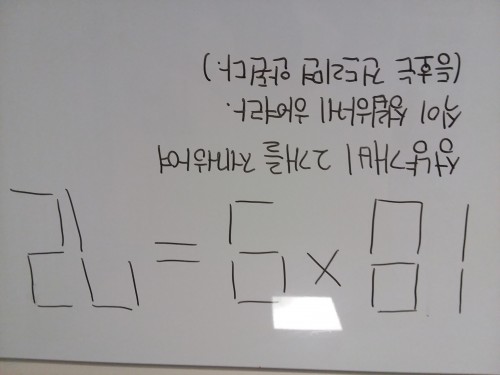 18 × 9 = 72
성냥개비 2개를 제거하여
식이 성립하게 하여라.
(등호는 건드리면 안된다.)